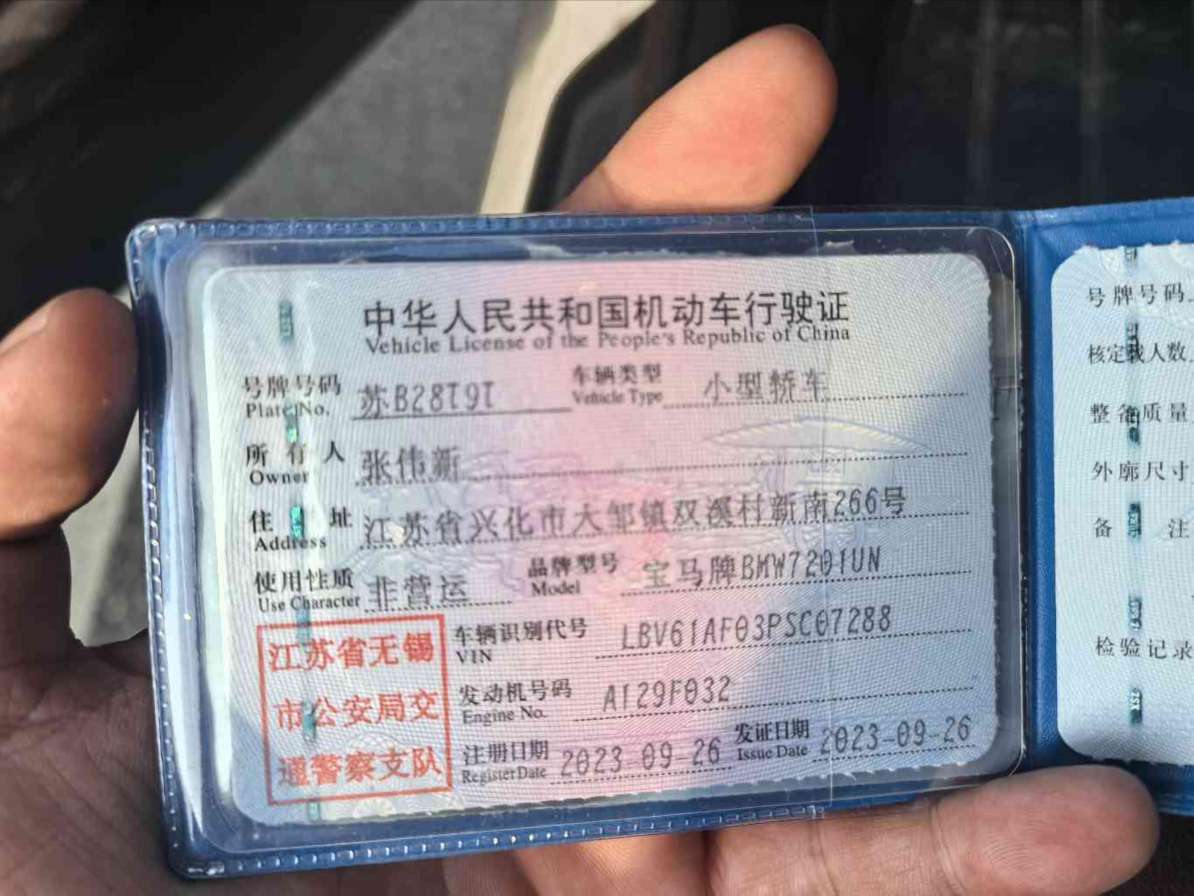 中华人民共和国机动车行驶证
Vehicle License of the People's Republic of China
号牌号码 苏B28T9T 车辆类型 小型轿车
Plate No. Vehicle Type
所有人 张伟新
Owner
住址 江苏省兴化市大邹镇双溪村新南266号
Address
使用性质 非营运 品牌型号 宝马牌BMW7201UN
Use Character Model
江苏省无锡
市公安局交
通警察支队
车辆识别代号 LBV61AF03PSC07288
VIN
发动机号码 A129F032
Engine No.
注册日期 2023-09-26 发证日期 2023-09-26
Register Date Issue Date
号牌号码
核定载人数
整备质量
外廓尺寸
备注
检验记录